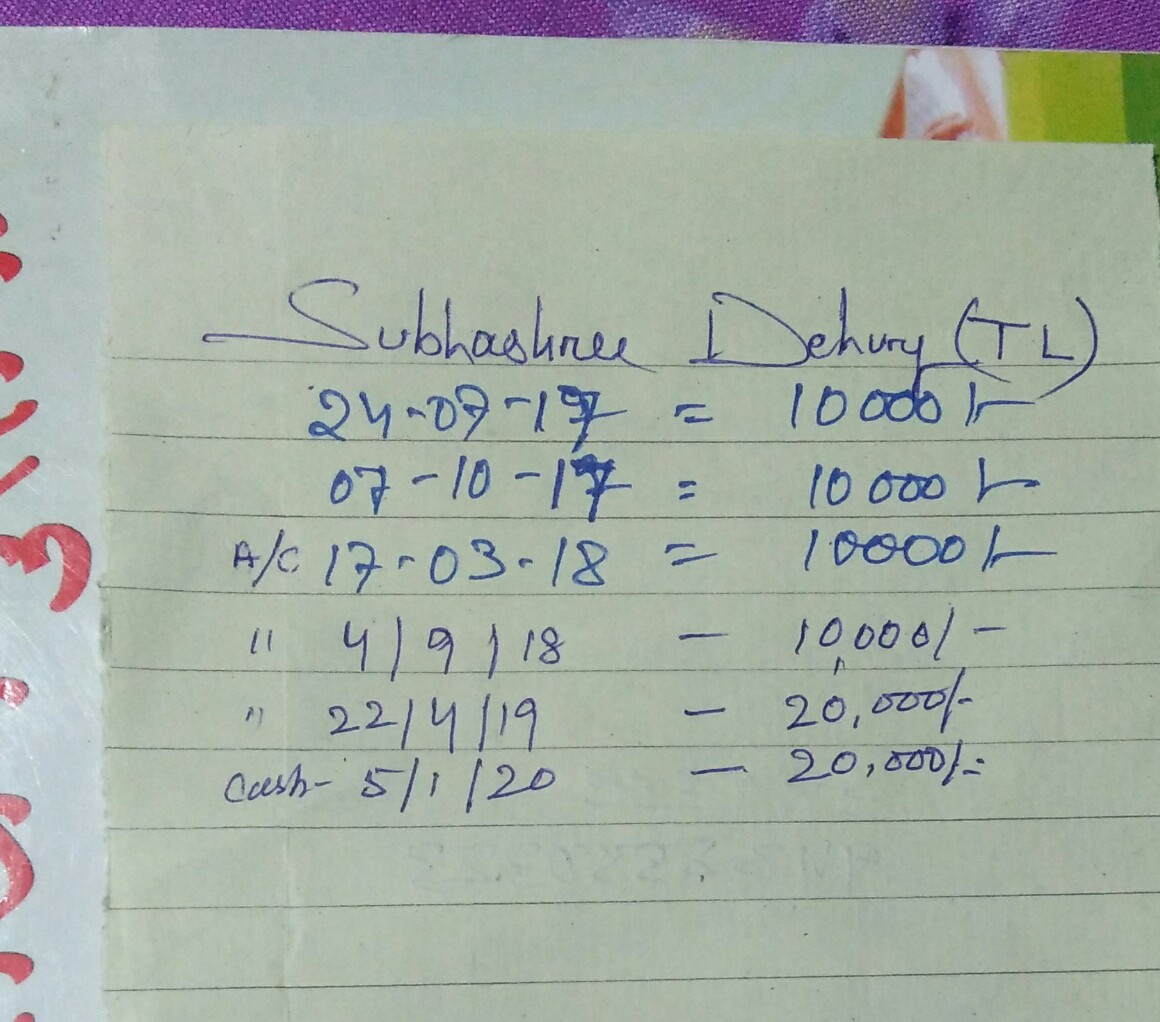 Subhashree Dehury (TL)
24-07-17 = 10000/-
07-10-17 = 10000/-
A/C 17-03-18 = 10000/-
" 4/9/18 - 10,000/-
" 22/4/19 - 20,000/-
Cash- 5/1/20 - 20,000/-